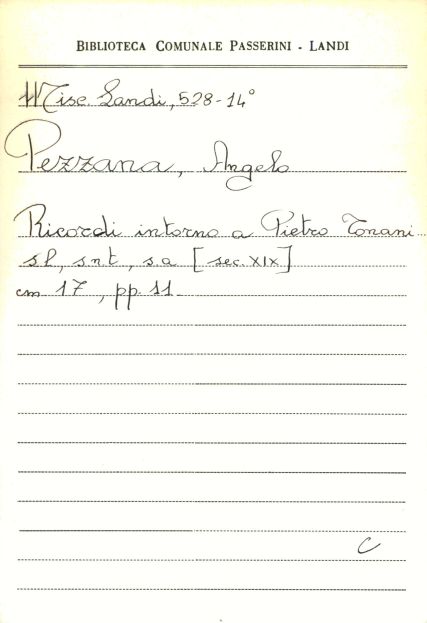 BIBLIOTECA COMUNALE PASSERINI - LANDI
Misc. Landi, 528-14°
Pezzana, Angelo
Ricordi intorno a Pietro Tonani
s.l, s.n.t, s.a [sec. XIX]
cm 17, pp. 11
C